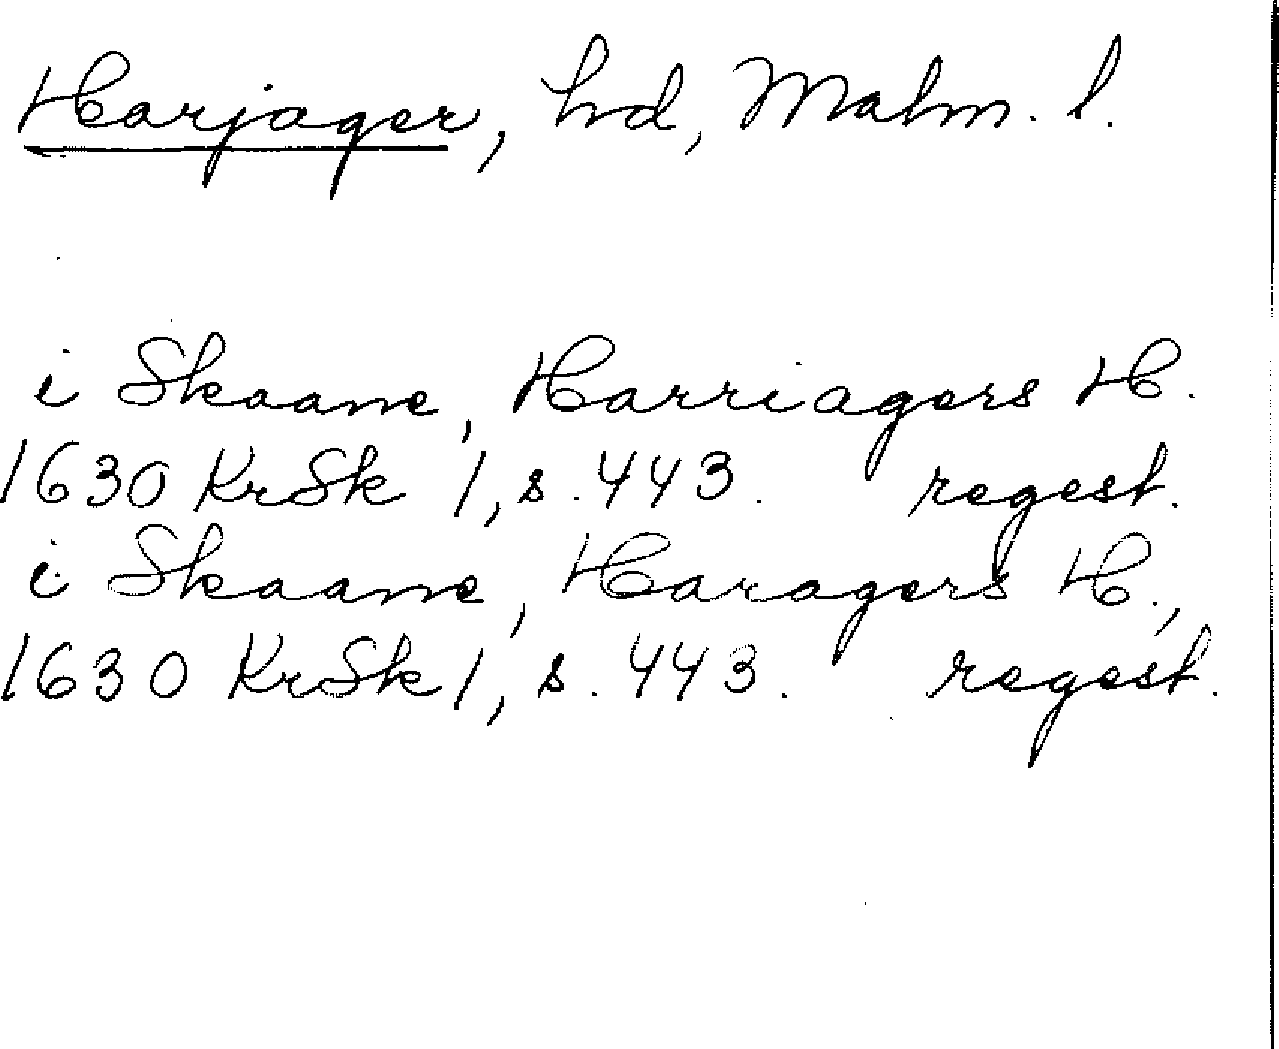 Harjager, hd, Malm. l.
i Skaane, Harriagers H.
1630 KrSk 1, s. 443. regest.
i Skaane, Haragers H.,
1630 KrSk 1, s. 443. regest.